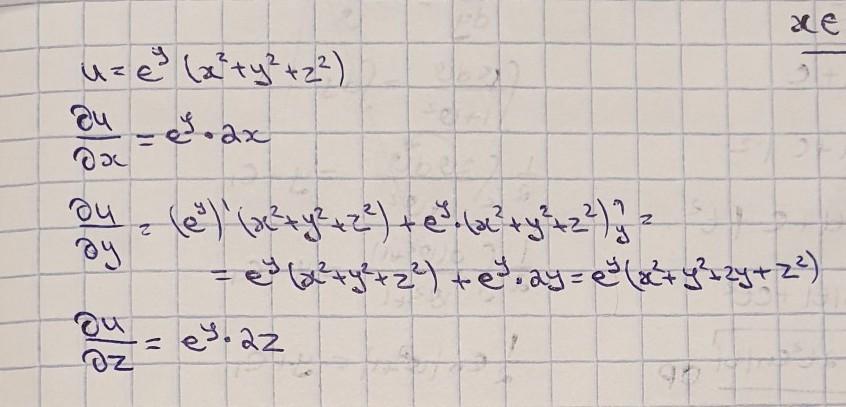 xe
u = e^y (x² + y² + z²)
∂u/∂x = e^y · 2x
∂u/∂y = (e^y)' (x² + y² + z²) + e^y · (x² + y² + z²)'_y =
= e^y (x² + y² + z²) + e^y · 2y = e^y (x² + y² + 2y + z²)
∂u/∂z = e^y · 2z